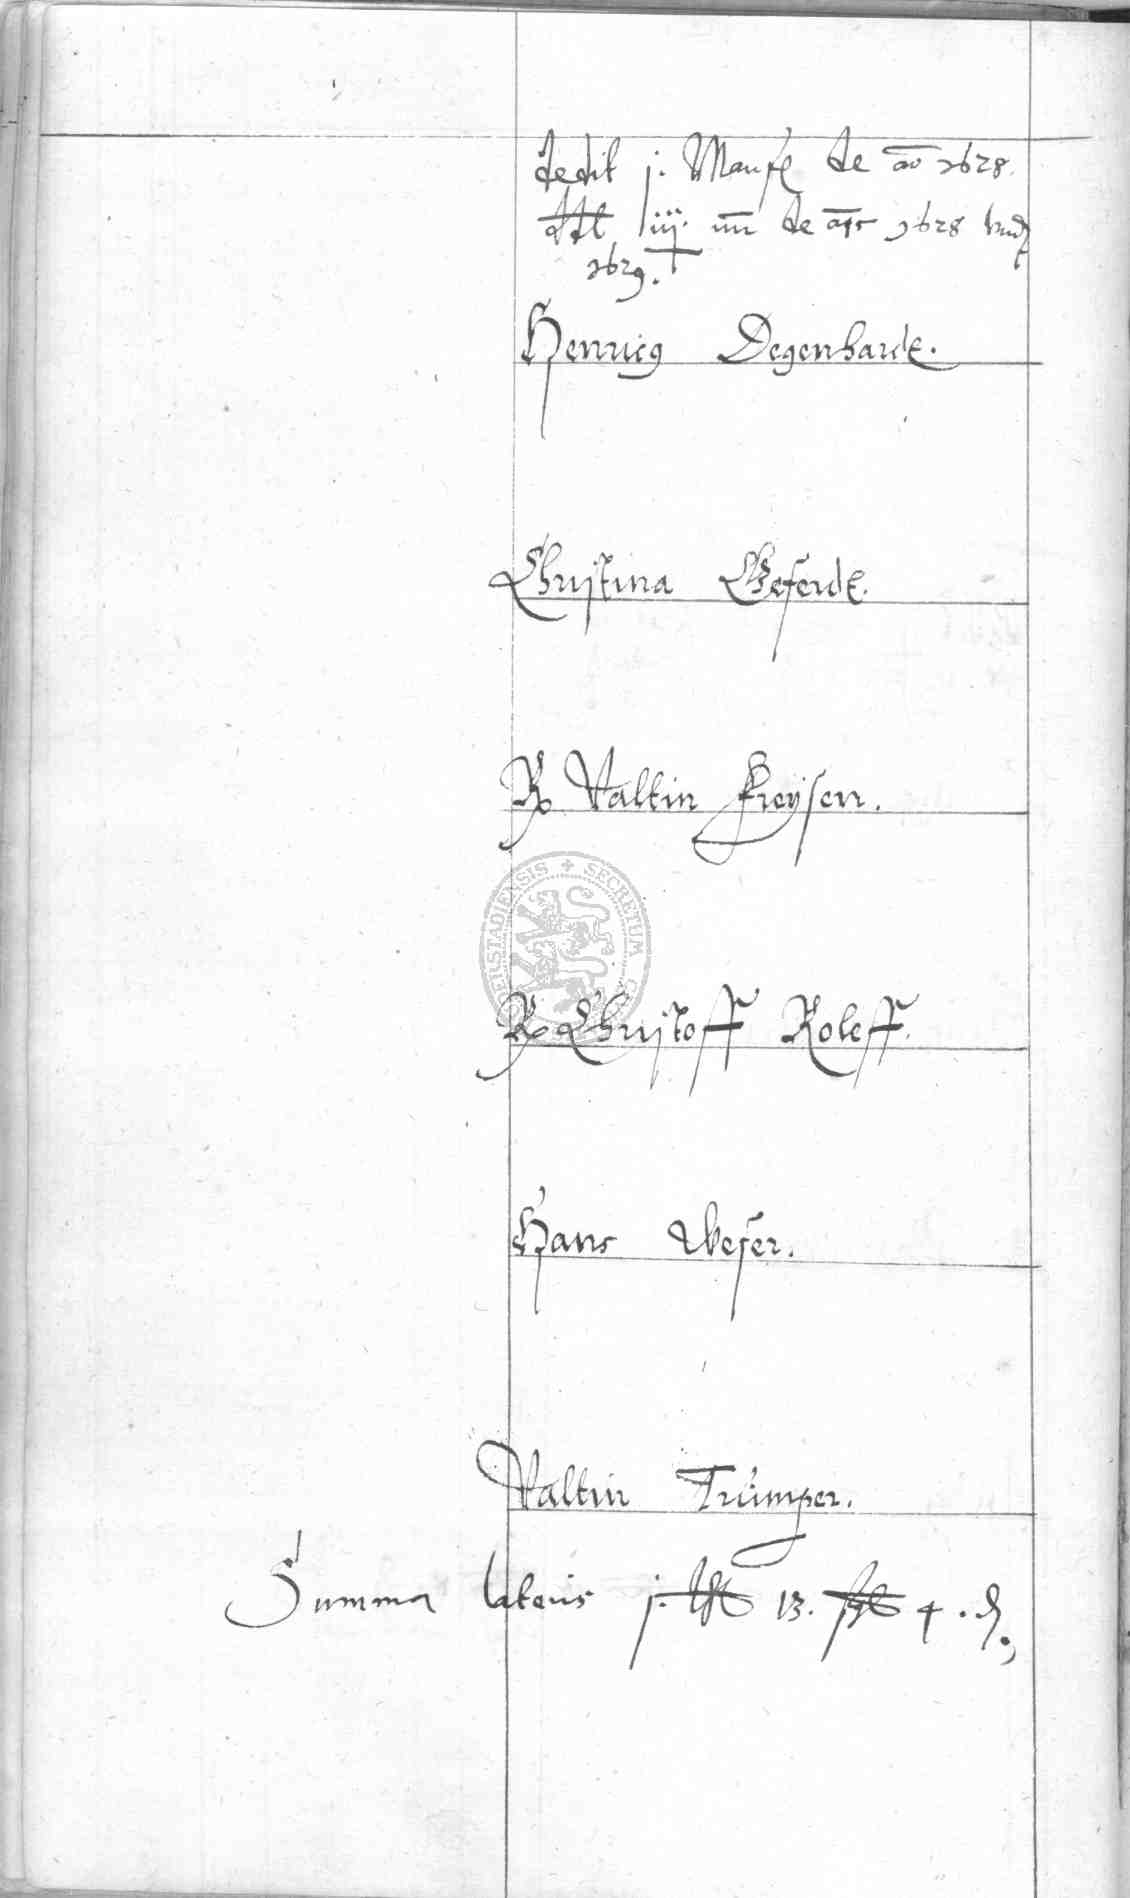 dedit j. Maufe de ao 1628.
ddt iiij. de ais 1628 vnd
1629.
Henricg Degenhardt.
Christina Geferdt.
R Valtin Freysen.
R Christoff Roleff.
Hans Weser.
Valtin Trümper.
Summa lateris j. 13. 4. d.
SECRETUM DERSTADIENSIS